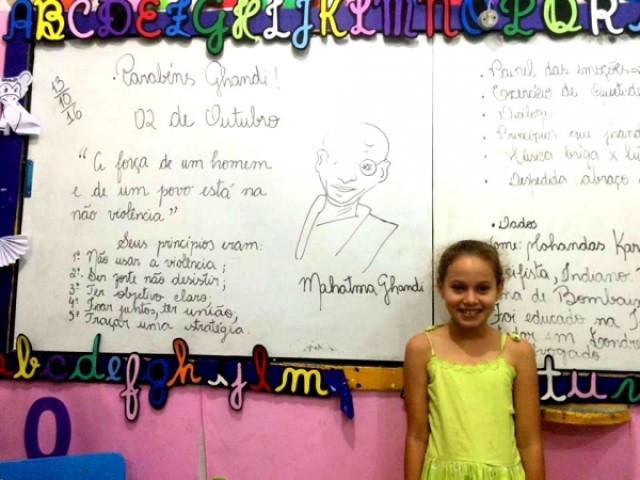 ABCDEFGHIJKLMNOPQR
13
10
16
Parabéns Ghandi!
02 de Outubro
"A força de um homem
e de um povo está na
não violência"
Seus princípios eram:
1º Não usar a violência;
2º Ser forte não desistir;
3º Ter objetivo claro;
4º Ficar juntos, ter união;
5º Traçar uma estratégia.
Mahatma Ghandi
. Painel das emoções
. Exercício de Quietude
. Diálogo
. Princípios que
. Música briga x
. Despedida abraço
. Dados
Nome: Mohandas Kar
Indiano.
de Bombaim
Foi educado na
em Londre
advogado
b c d e f g h i j l m
t u
o